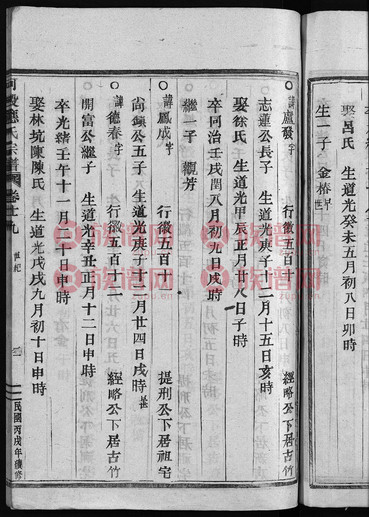 娶呂氏 生道光癸未五月初八日卯時
生一子 金椿早世
諱盧發字 行徵五百 經略公下居古竹
志蓮公長子 生道光庚子十二月十五日亥時
娶徐氏 生道光甲辰正月廿八日子時
卒同治壬戌閏八月初九日戌時
繼一子 觀芳
諱鳳成字 行徵五百十 提刑公下居祖宅
尚鎮公五子 生道光庚子十二月廿四日戌時
諱德春字 行徵五百十二 經略公下居古竹
開富公繼子 生道光辛丑正月十二日申時
卒光緒壬午十一月二十日申時
娶林坑陳陳氏 生道光戊戌九月初十日申時
應氏宗譜 卷十九 世紀
民國丙戌年續修
族谱网